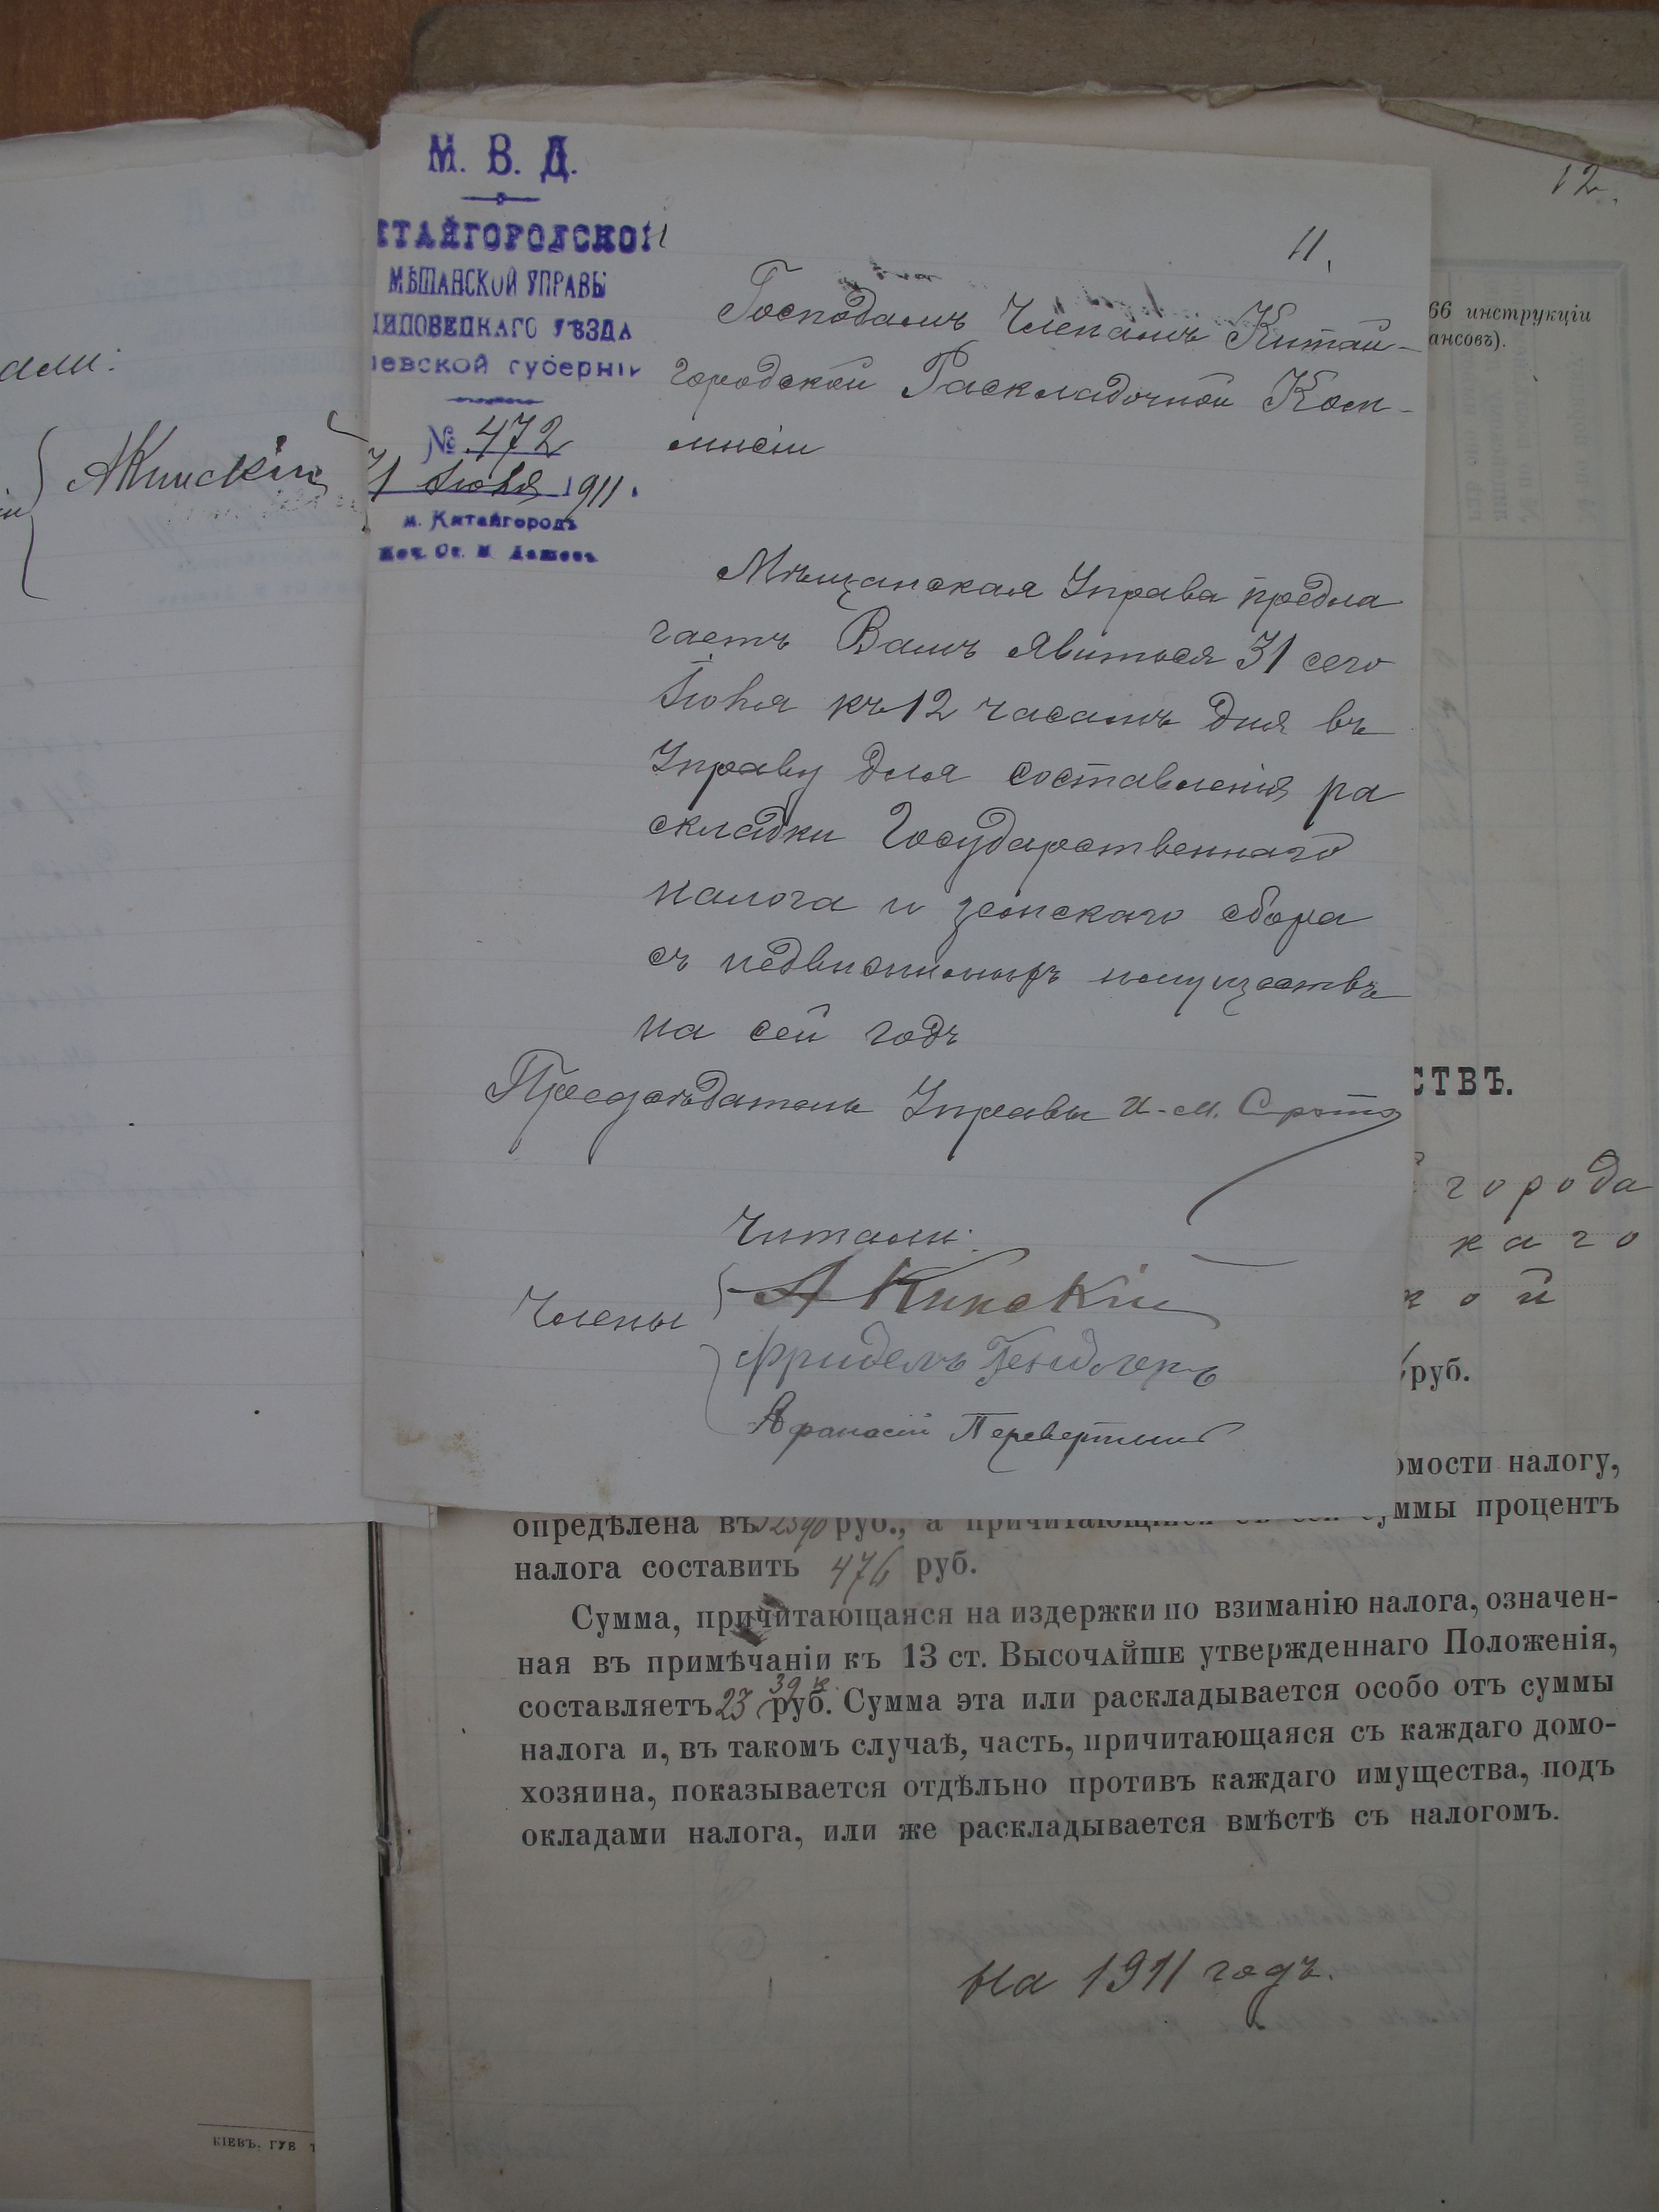 М. В. Д.
ТАЙГОРОДСКОЙ
МѢЩАНСКОЙ УПРАВЫ
ЛИПОВЕЦКАГО УѢЗДА
іевской губерніи
№ 472
1911.
м. Китайгородъ
Поч. Ст. М. Дашевъ
11.
Господамъ Членамъ Китай-
городской Раскладочной Ком-
мисіи
Мѣщанская Управа предла
гаетъ Вамъ явиться 31 сего
Іюля къ 12 часамъ дня въ
Управу для составленія ра
складки Государственнаго
налога и земскаго сбора
съ недвижимыхъ имуществъ
на сей годъ
Предсѣдатель Управы И. М.
Читали:
Члены
А Кинскій
Фридель
Афанасій Перевертинъ
али:
АКинскій
12.
66 инструкціи
ансовъ).
СТВЪ.
города
каго
кой
руб.
омости налогу,
опредѣлена въ руб., а причитающійся съ сей суммы процентъ
налога составить 476 руб.
Сумма, причитающаяся на издержки по взиманію налога, означен-
ная въ примѣчаніи къ 13 ст. Высочайше утвержденнаго Положенія,
составляетъ 23 руб. 39 к. Сумма эта или раскладывается особо отъ суммы
налога и, въ такомъ случаѣ, часть, причитающаяся съ каждаго домо-
хозяина, показывается отдѣльно противъ каждаго имущества, подъ
окладами налога, или же раскладывается вмѣстѣ съ налогомъ.
На 1911 годъ.
КІЕВЪ, ГУБ